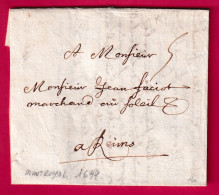 A Monsieur 5
Monsieur Jean Faciot
marchand au soleil
a Reims
montroyal 1692